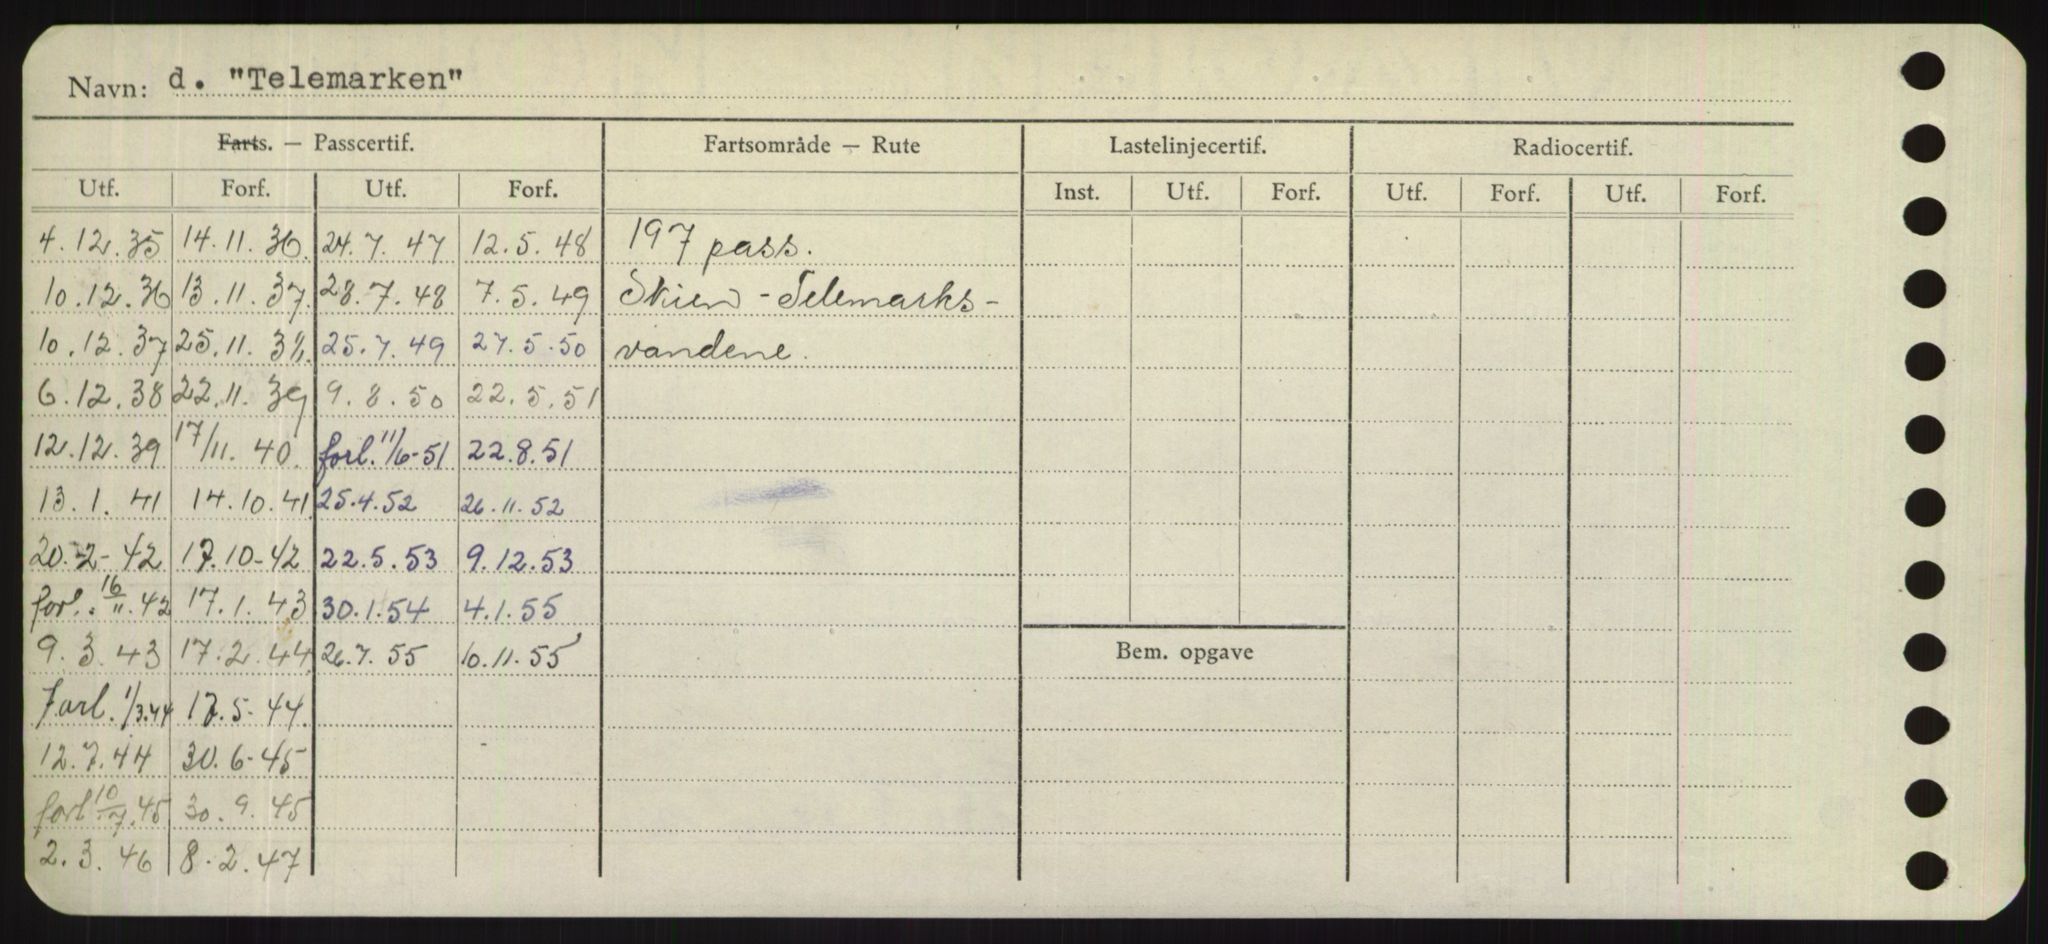 Navn: d. "Telemarken"
Farts. — Passcertif. Fartsområde — Rute Lastelinjecertif. Radiocertif.
Utf. Forf. Utf. Forf. Inst. Utf. Forf. Utf. Forf. Utf. Forf.
4.12.35 14.11.36. 24.7.47 12.5.48 197 pass.
10.12.36 13.11.37. 28.7.48 7.5.49 Skien - Telemarks-
10.12.37 25.11.38. 25.7.49 27.5.50 vandene.
6.12.38 22.11.39 9.8.50 22.5.51
12.12.39 17/11.40. forl. 11/6-51 22.8.51
13.1.41 14.10.41 25.4.52 26.11.52
20.2-42 17.10-42 22.5.53 9.12.53
forl. 16/11.42 17.1.43 30.1.54 4.1.55
9.3.43 17.2.44 26.7.55 10.11.55
Bem. opgave
Forl. 1/3.44 17.5-44.
12.7.44 30.6-45
forl 10/7.45 30.9.45
2.3.46 8.2.47